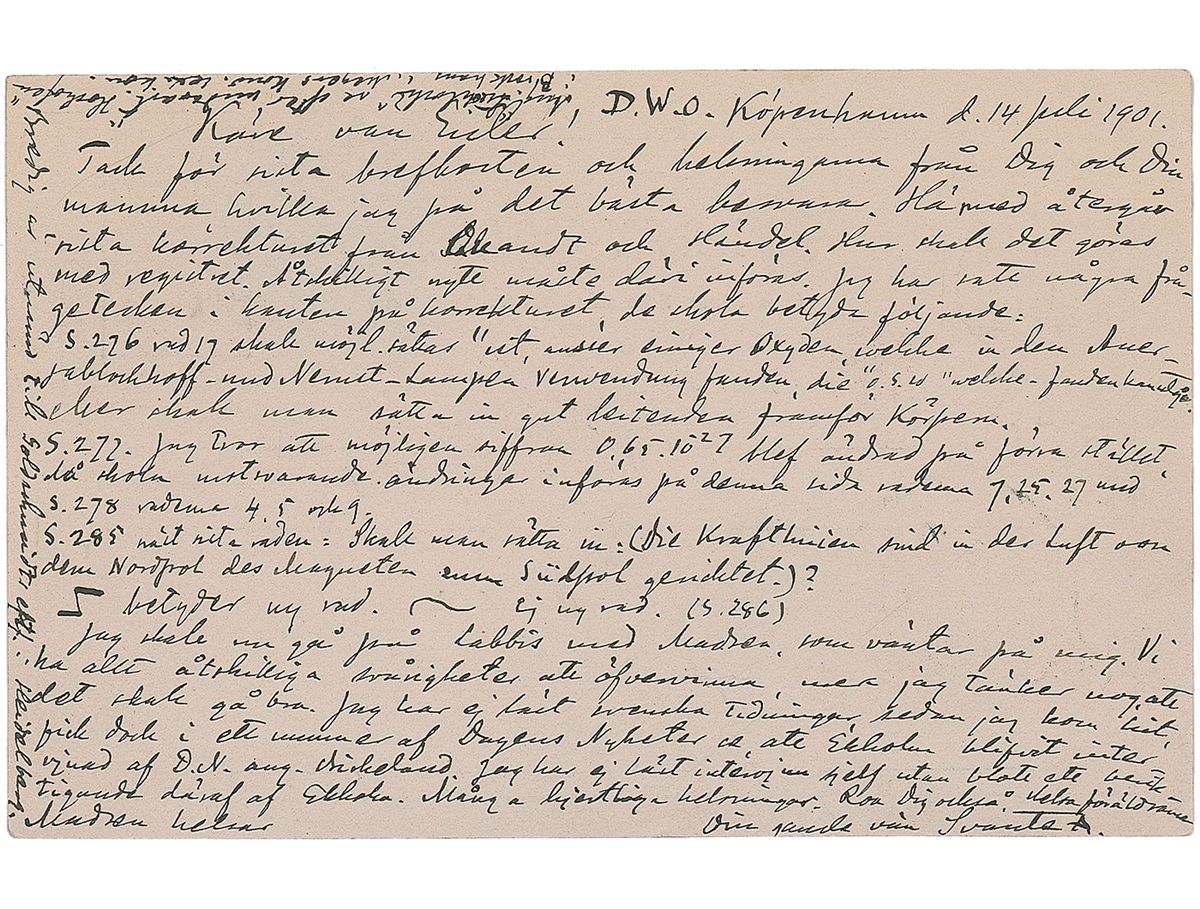 D.W.O. Köpenhamn d. 14 Juli 1901.
Käre van Euler!
Tack för sista brefkorten och helsningarna från Dig och Din
mamma hvilka jag på det bästa besvarar. Härmed återgår
sista korrekturet från och Händel. Hur skall det göras
med registret. Åtskilligt nytt måste däri införas. Jag har satt några frå-
getecken i kanten på korrekturet, de skola betyda följande:
S. 276 rad 17 skall möjl. sättas "ist, ausser einiger Oxyden, welche in den Auer-
Jablochkoff- und Nernst-Lampen Verwendung fanden, die" o.s.v "welche - fanden kan utgå
eller skall man sätta in gut leitenden framför Körpern.
S. 277. Jag tror att möjligen siffran 0,65.10²7 blef ändrad på förra stället
då skola motsvarande ändringar införas på denna sida raderna 7, 25, 27 und
S. 278 raderna 4, 5 och 9.
S. 285 näst sista raden: Skall man sätta in: (Die Kraftlinien sind in der Luft von
dem Nordpol des Magneten zum Südpol gerichtet.)?
betyder ny rad. Ej ny rad. (S. 286)
Jag skall nu gå på Labbis med Madsen, som väntar på mig. Vi
ha allt åtskilliga svårigheter att öfvervinna, men jag tänker nog, att
det skall gå bra. Jag har ej läst svenska tidningar, sedan jag kom hit,
fick dock i ett nummer af Dagens Nyheter se, att Ekholm blifvit inter-
vjuad af D.N. ang. Birkeland. Jag har ej läst intervjun sjelf utan blott ett berik-
tigande däraf af Ekholm. Många hjertliga helsningar. Roa Dig också. Helsa föräldrarna
Madsen helsar Din gamle vän Svante A.
Bredig är utnämnd till Goldschmidts eftr. i Heidelberg.